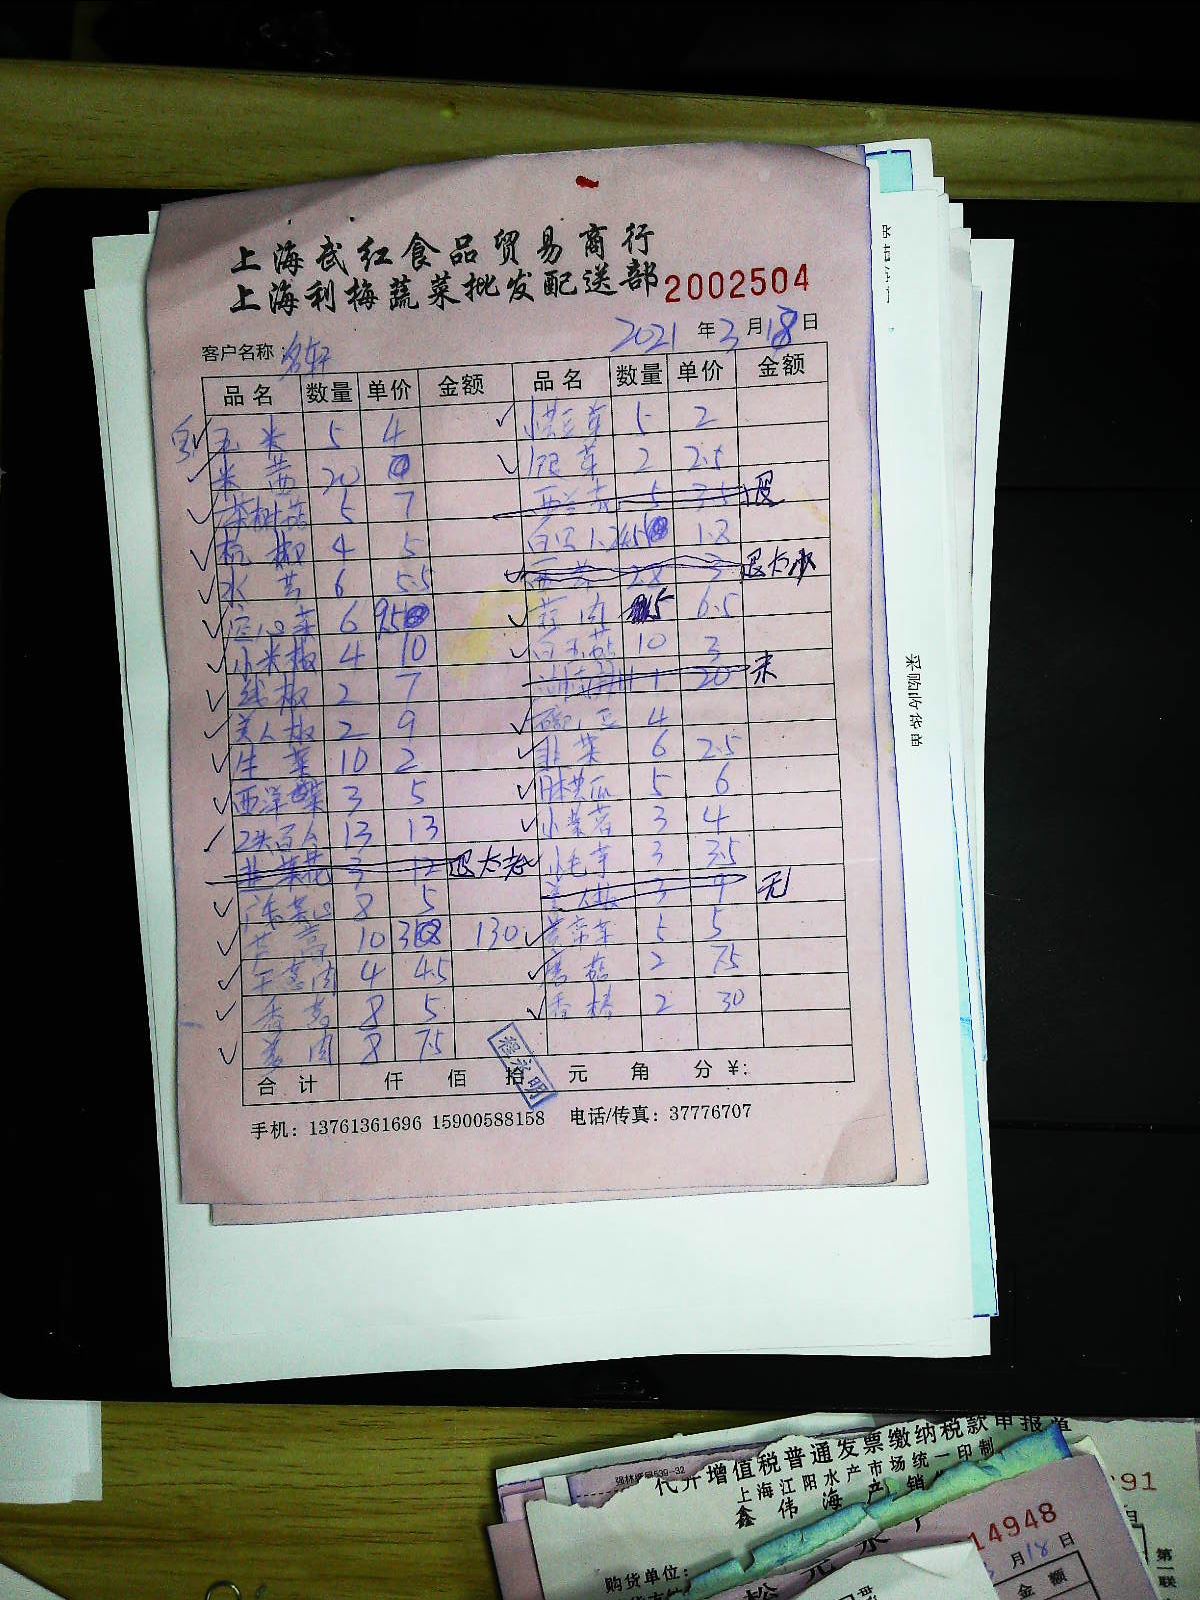 上海武红食品贸易商行
上海利梅蔬菜批发配送部 2002504
客户名称: 名轩 2021年3月18日
品名 数量 单价 金额 品名 数量 单价 金额
玉米 5 4 小黄豆芽 5 2
米茜 20 银芽 2 2.5
茶树菇 5 7 西兰花 5 3.5 退
杭椒 4 5 白 1.8
水芹 6 5.5 西芹 28 3 退太小
空心菜 6 9.5 蒜肉 15 6.5
小米椒 4 10 白玉菇 10 3
线椒 2 7 1 20 未
美人椒 2 9 4
生菜 10 2 韭菜 6 2.5
西洋菜 3 5 黄瓜 5 6
2头百合 13 13 小紫薯 3 4
韭菜花 3 12 退太老 小毛芋 3 3.5
广东菜心 8 5 3 9 无
10 130 5 5
毛豆肉 4 4.5 蘑菇 2 7.5
香葱 8 5 香椿 2 30
姜肉 8 7.5
合计 仟 佰 拾 元 角 分 ¥:
手机: 13761361696 15900588158 电话/传真: 37776707
采购收货单
代开增值税普通发票缴纳税款申报
上海江阳水产市场统一印制
鑫伟海产销
14948
购货单位:
月18日
金额
第一联
91